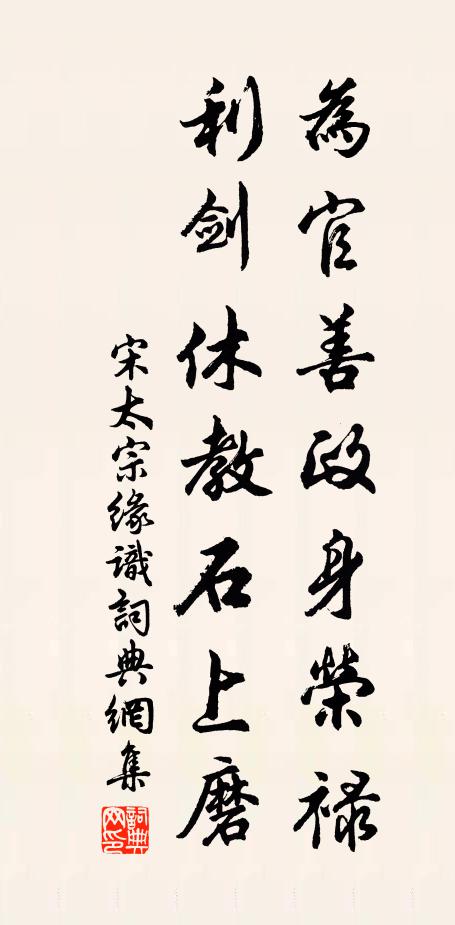 為官善政身榮祿
利劍休教石上磨
宋太宗緣識詞典網集
詞典網印